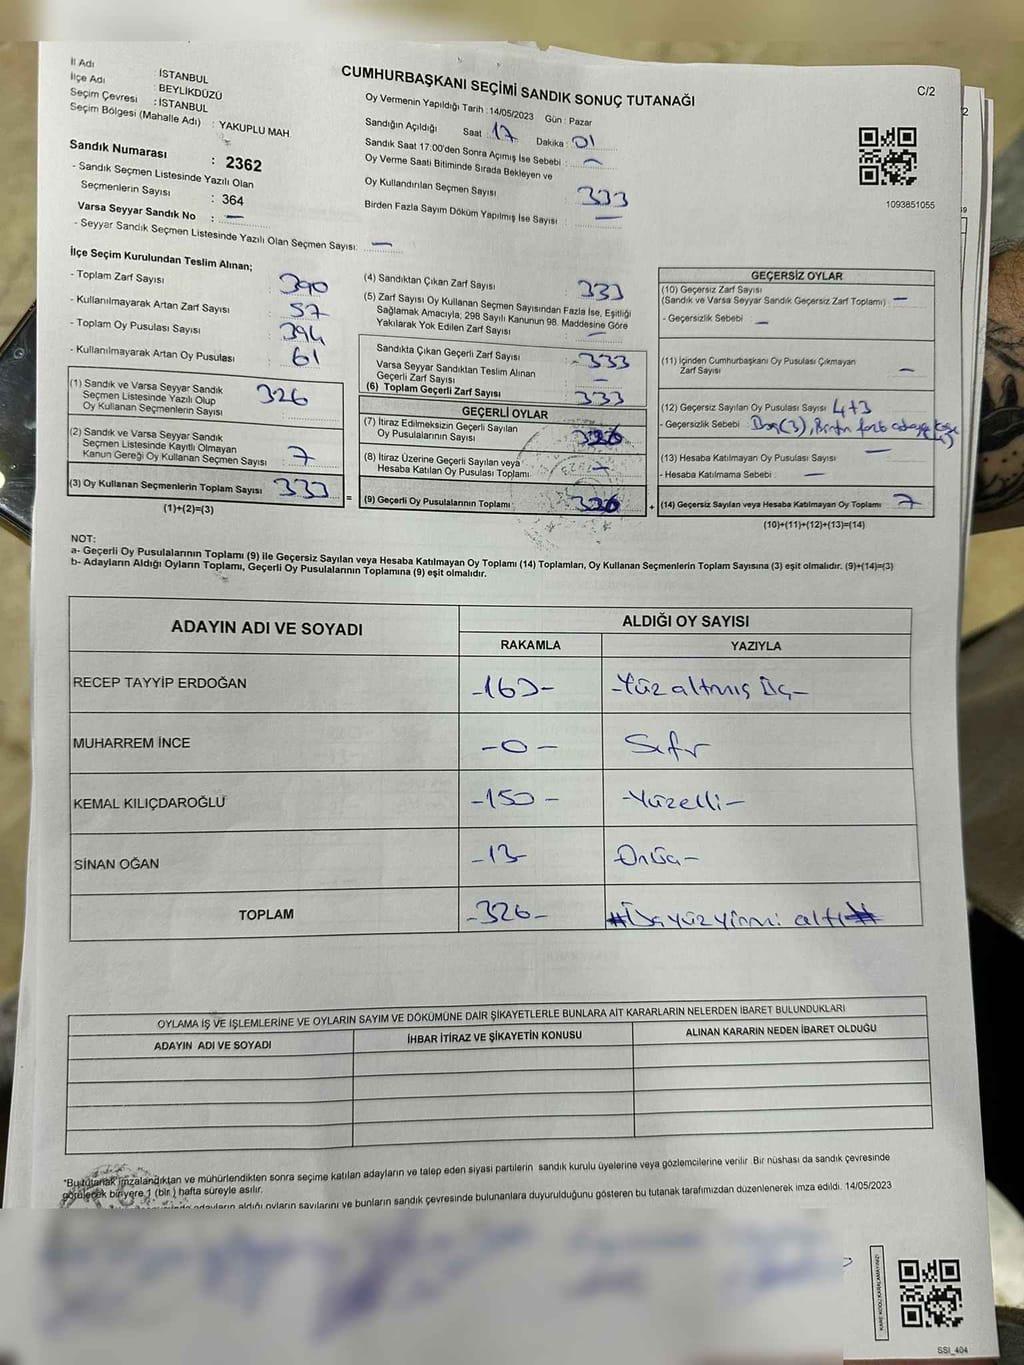 İl Adı : İSTANBUL
İlçe Adı : BEYLİKDÜZÜ
Seçim Çevresi : İSTANBUL
Seçim Bölgesi (Mahalle Adı) : YAKUPLU MAH.
Sandık Numarası : 2362
- Sandık Seçmen Listesinde Yazılı Olan
Seçmenlerin Sayısı : 364
Varsa Seyyar Sandık No : —
- Seyyar Sandık Seçmen Listesinde Yazılı Olan Seçmen Sayısı: —
CUMHURBAŞKANI SEÇİMİ SANDIK SONUÇ TUTANAĞI
C/2
Oy Vermenin Yapıldığı Tarih : 14/05/2023 Gün : Pazar
Sandığın Açıldığı Saat : 17 Dakika : 01
Sandık Saat 17:00'den Sonra Açımış İse Sebebi : —
Oy Verme Saati Bitiminde Sırada Bekleyen ve
Oy Kullandırılan Seçmen Sayısı 333
Birden Fazla Sayım Döküm Yapılmış İse Sayısı : —
1093851055
İlçe Seçim Kurulundan Teslim Alınan;
- Toplam Zarf Sayısı : 390
- Kullanılmayarak Artan Zarf Sayısı : 57
- Toplam Oy Pusulası Sayısı : 394
- Kullanılmayarak Artan Oy Pusulası : 61
(1) Sandık ve Varsa Seyyar Sandık
Seçmen Listesinde Yazılı Olup
Oy Kullanan Seçmenlerin Sayısı : 326
(2) Sandık ve Varsa Seyyar Sandık
Seçmen Listesinde Kayıtlı Olmayan
Kanun Gereği Oy Kullanan Seçmen Sayısı : 7
(3) Oy Kullanan Seçmenlerin Toplam Sayısı : 333
(1)+(2)=(3)
(4) Sandıktan Çıkan Zarf Sayısı : 333
(5) Zarf Sayısı Oy Kullanan Seçmen Sayısından Fazla İse, Eşitliği
Sağlamak Amacıyla, 298 Sayılı Kanunun 98. Maddesine Göre
Yakılarak Yok Edilen Zarf Sayısı : —
Sandıkta Çıkan Geçerli Zarf Sayısı : 333
Varsa Seyyar Sandıktan Teslim Alınan
Geçerli Zarf Sayısı : —
(6) Toplam Geçerli Zarf Sayısı : 333
GEÇERLİ OYLAR
(7) İtiraz Edilmeksizin Geçerli Sayılan
Oy Pusulalarının Sayısı : 326
(8) İtiraz Üzerine Geçerli Sayılan veya
Hesaba Katılan Oy Pusulası Toplamı : —
= (9) Geçerli Oy Pusulalarının Toplamı : 326
GEÇERSİZ OYLAR
(10) Geçersiz Zarf Sayısı
(Sandık ve Varsa Seyyar Sandık Geçersiz Zarf Toplamı) : —
- Geçersizlik Sebebi : —
(11) İçinden Cumhurbaşkanı Oy Pusulası Çıkmayan
Zarf Sayısı : —
(12) Geçersiz Sayılan Oy Pusulası Sayısı : 4+3
- Geçersizlik Sebebi : Boş(3), Birden fazla adaya
(13) Hesaba Katılmayan Oy Pusulası Sayısı : —
- Hesaba Katılmama Sebebi : —
+ (14) Geçersiz Sayılan veya Hesaba Katılmayan Oy Toplamı : 7
(10)+(11)+(12)+(13)=(14)
NOT:
a- Geçerli Oy Pusulalarının Toplamı (9) ile Geçersiz Sayılan veya Hesaba Katılmayan Oy Toplamı (14) Toplamları, Oy Kullanan Seçmenlerin Toplam Sayısına (3) eşit olmalıdır. (9)+(14)=(3)
b- Adayların Aldığı Oyların Toplamı, Geçerli Oy Pusulalarının Toplamına (9) eşit olmalıdır.
ADAYIN ADI VE SOYADI
ALDIĞI OY SAYISI
RAKAMLA YAZIYLA
RECEP TAYYİP ERDOĞAN -163- -Yüz altmış üç-
MUHARREM İNCE -0- Sıfır
KEMAL KILIÇDAROĞLU -150- -Yüzelli-
SİNAN OĞAN -13- Onüç-
TOPLAM -326- #Üçyüzyirmi altı#
OYLAMA İŞ VE İŞLEMLERİNE VE OYLARIN SAYIM VE DÖKÜMÜNE DAİR ŞİKAYETLERLE BUNLARA AİT KARARLARIN NELERDEN İBARET BULUNDUKLARI
ADAYIN ADI VE SOYADI İHBAR İTİRAZ VE ŞİKAYETİN KONUSU ALINAN KARARIN NEDEN İBARET OLDUĞU
*Bu tutanak imzalandıktan ve mühürlendikten sonra seçime katılan adayların ve talep eden siyasi partilerin sandık kurulu üyelerine veya gözlemcilerine verilir .Bir nüshası da sandık çevresinde
görülecek biryere 1 (bir ) hafta süreyle asılır.
adayların aldığı oyların sayılarını ve bunların sandık çevresinde bulunanlara duyurulduğunu gösteren bu tutanak tarafımızdan düzenlenerek imza edildi. 14/05/2023
KARE KODU KARALAMAYINIZ!
SSI_404